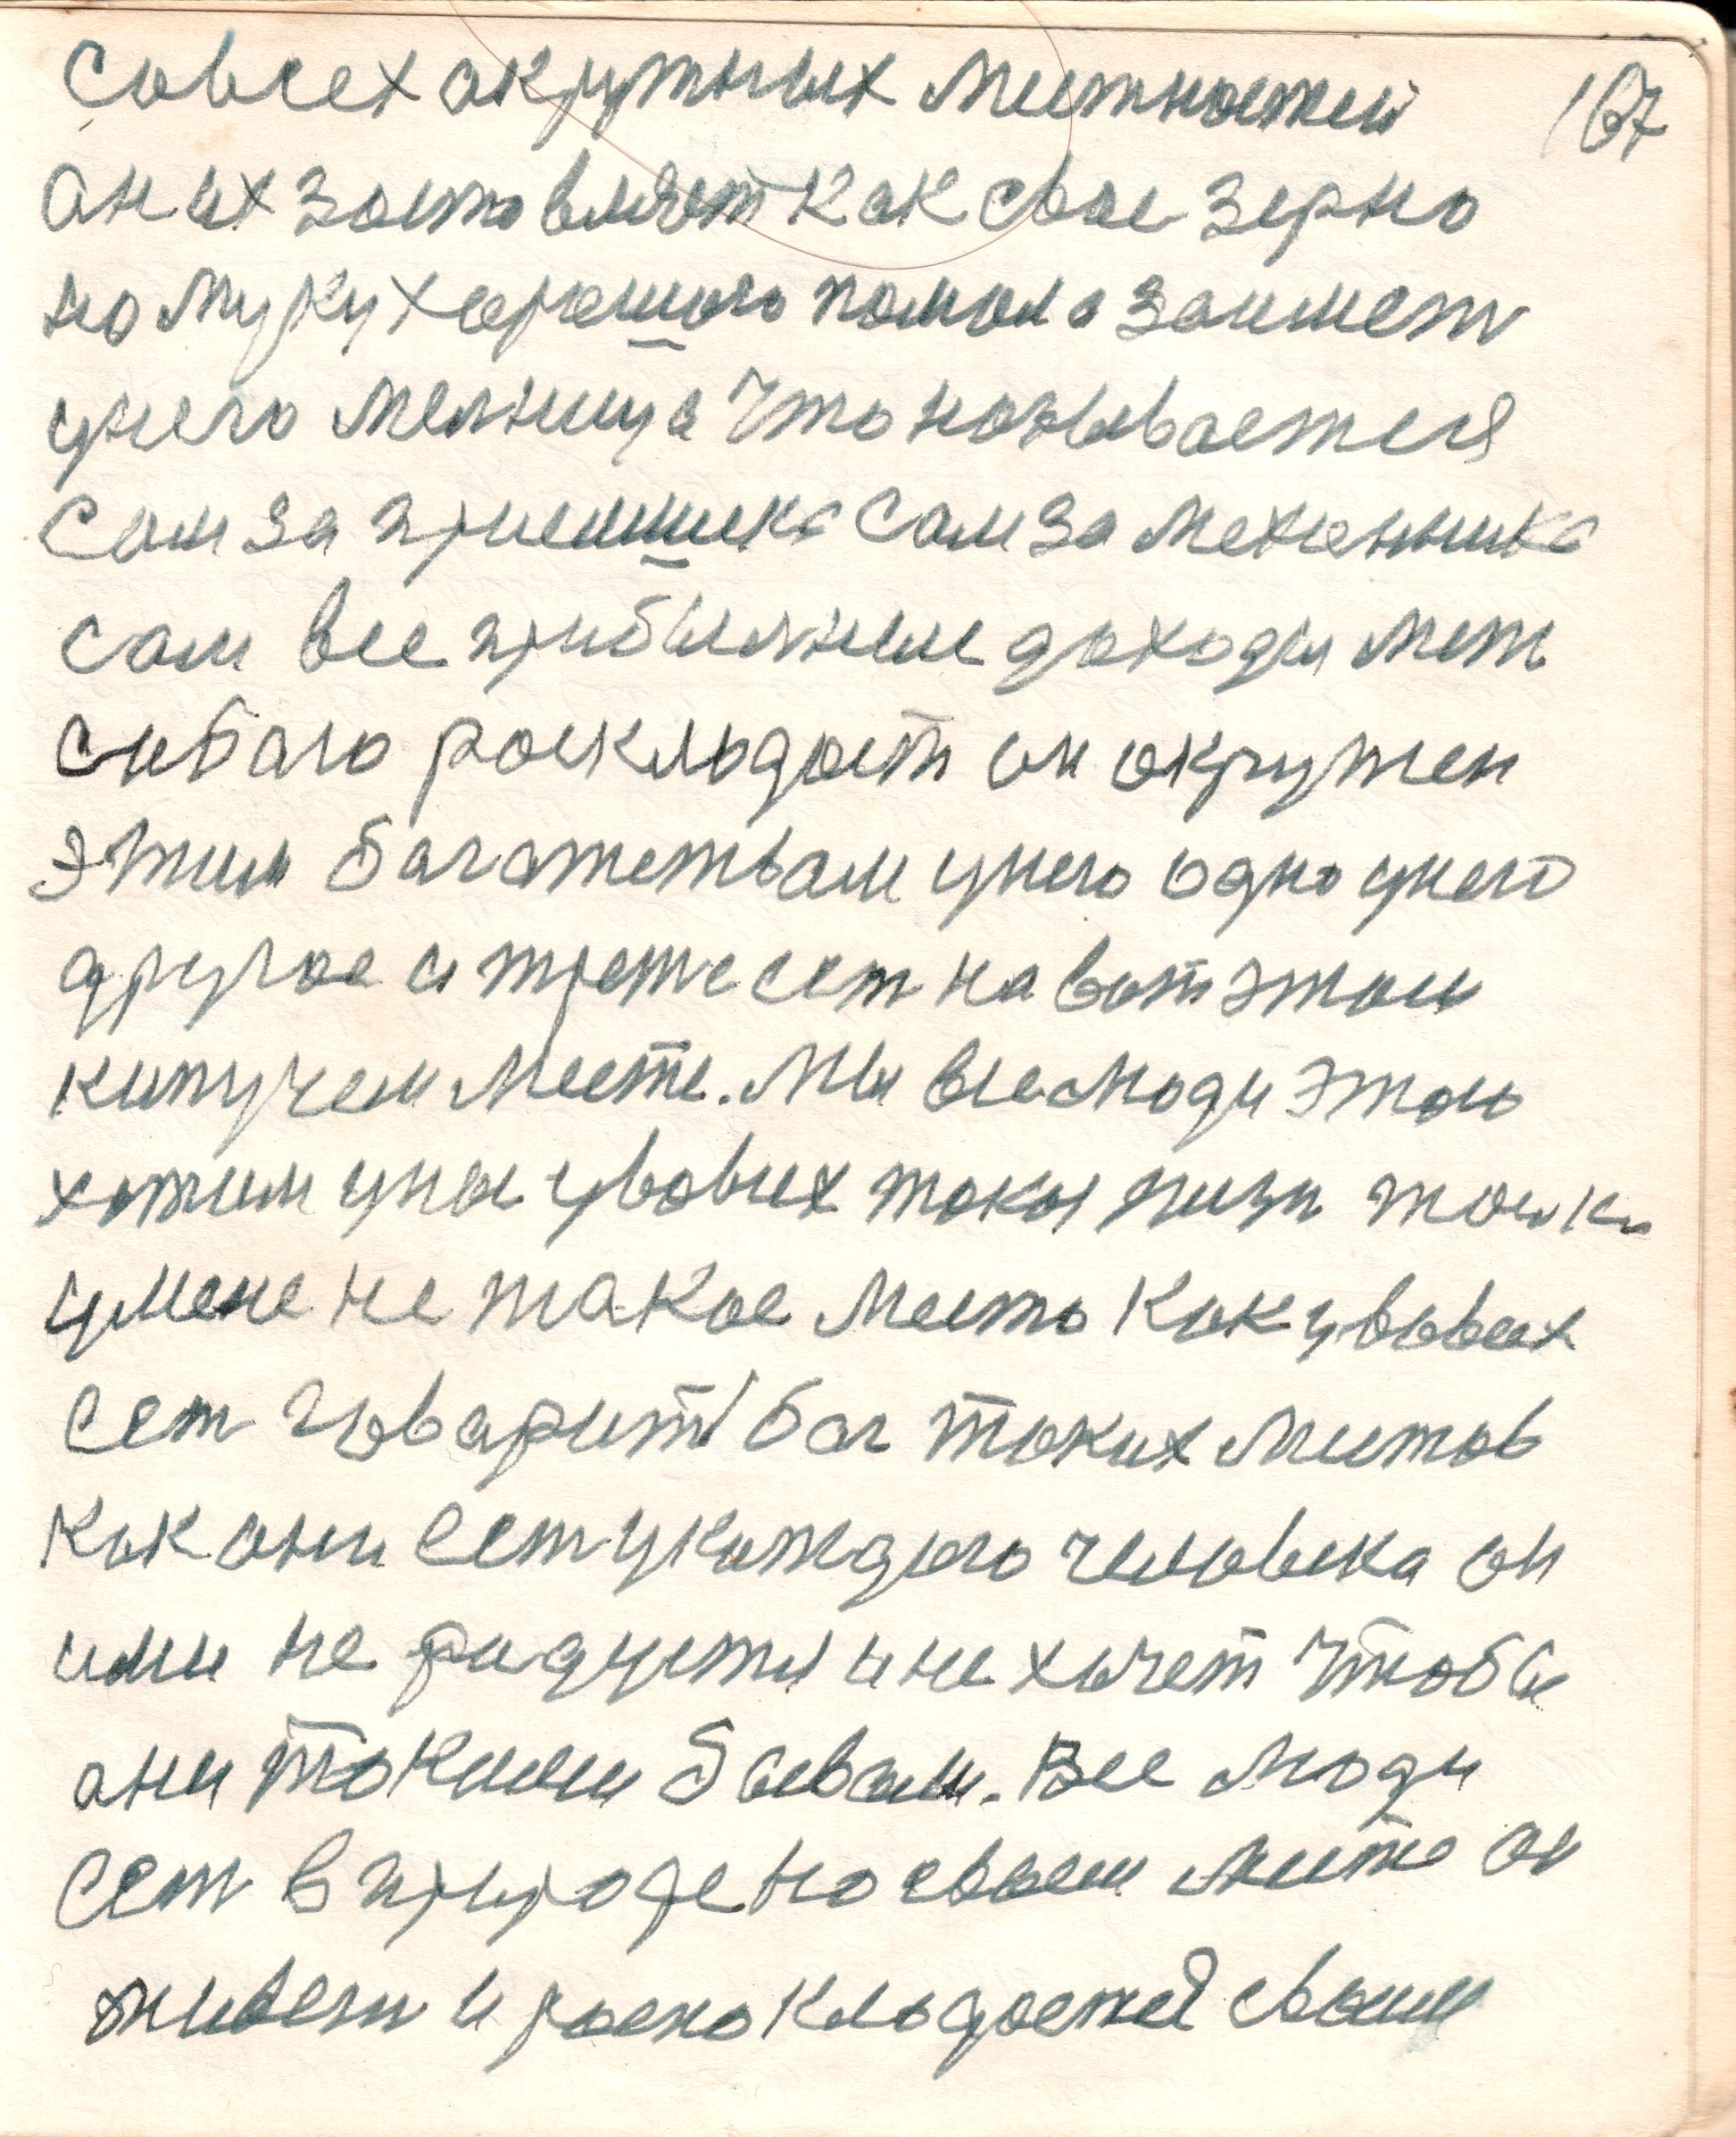 167
Совсех акружных местностей
ан их заставляет как свае зерно
на муку харошого помола заимет
у него мелница что называется
Сам за приемшика Сам за механника
сам все прибылные доходы мет
сибаго раскладает он окружен
этим багатством унего одно унего
другое и трете сет на вот этом
кипучем месте. Мы все люди этого
хотим у нас увовсих такая
умене не такое место как увовсих
Сет говарит баг таких местов
как они сет укаждого человека он
ими не радуется и не хочет чтобы
ани такими бывали. Все люди
Сет в природе на своем месте он
живет и располагается своим